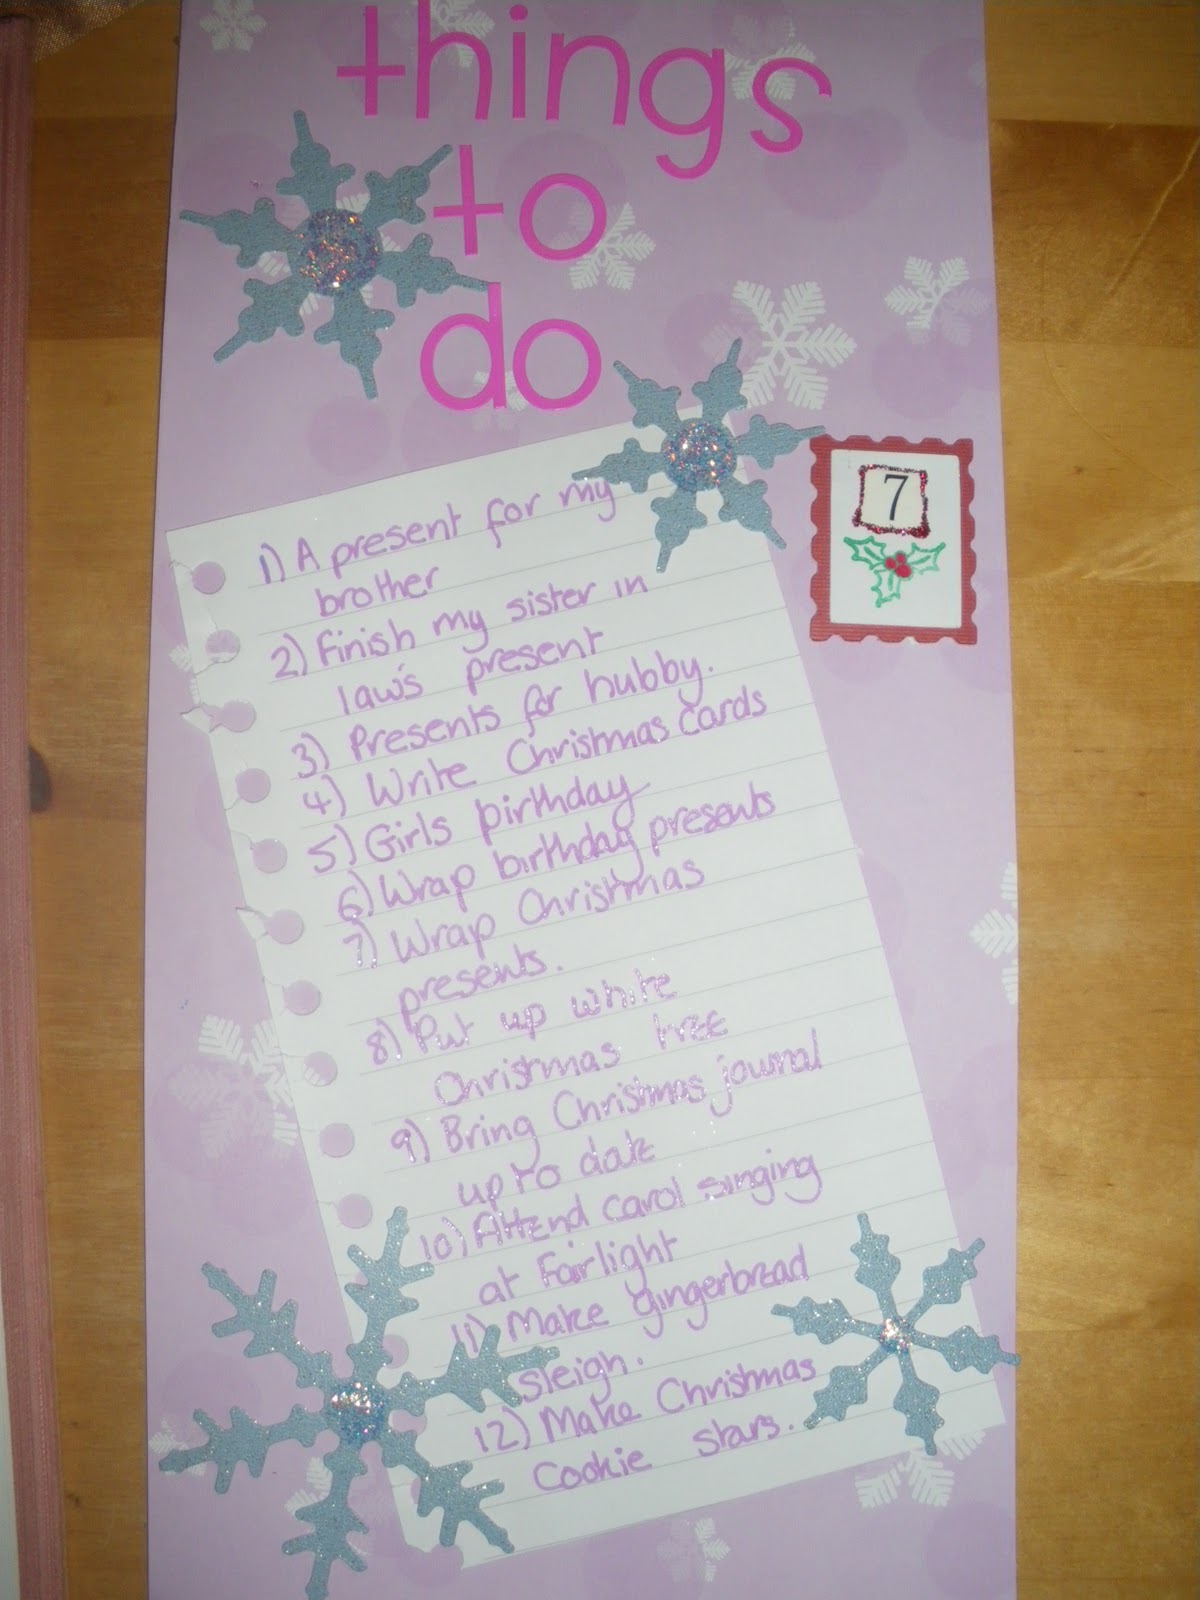 things
to
do
7
1) A present for my
brother
2) Finish my sister in
law's present
3) Presents for hubby.
4) Write Christmas cards
5) Girls birthday
6) Wrap birthday presents
7) Wrap Christmas
presents.
8) Put up white
Christmas tree
9) Bring Christmas journal
up to date
10) Attend carol singing
at Fairlight
11) Make gingerbread
sleigh.
12) Make Christmas
Cookie stars.